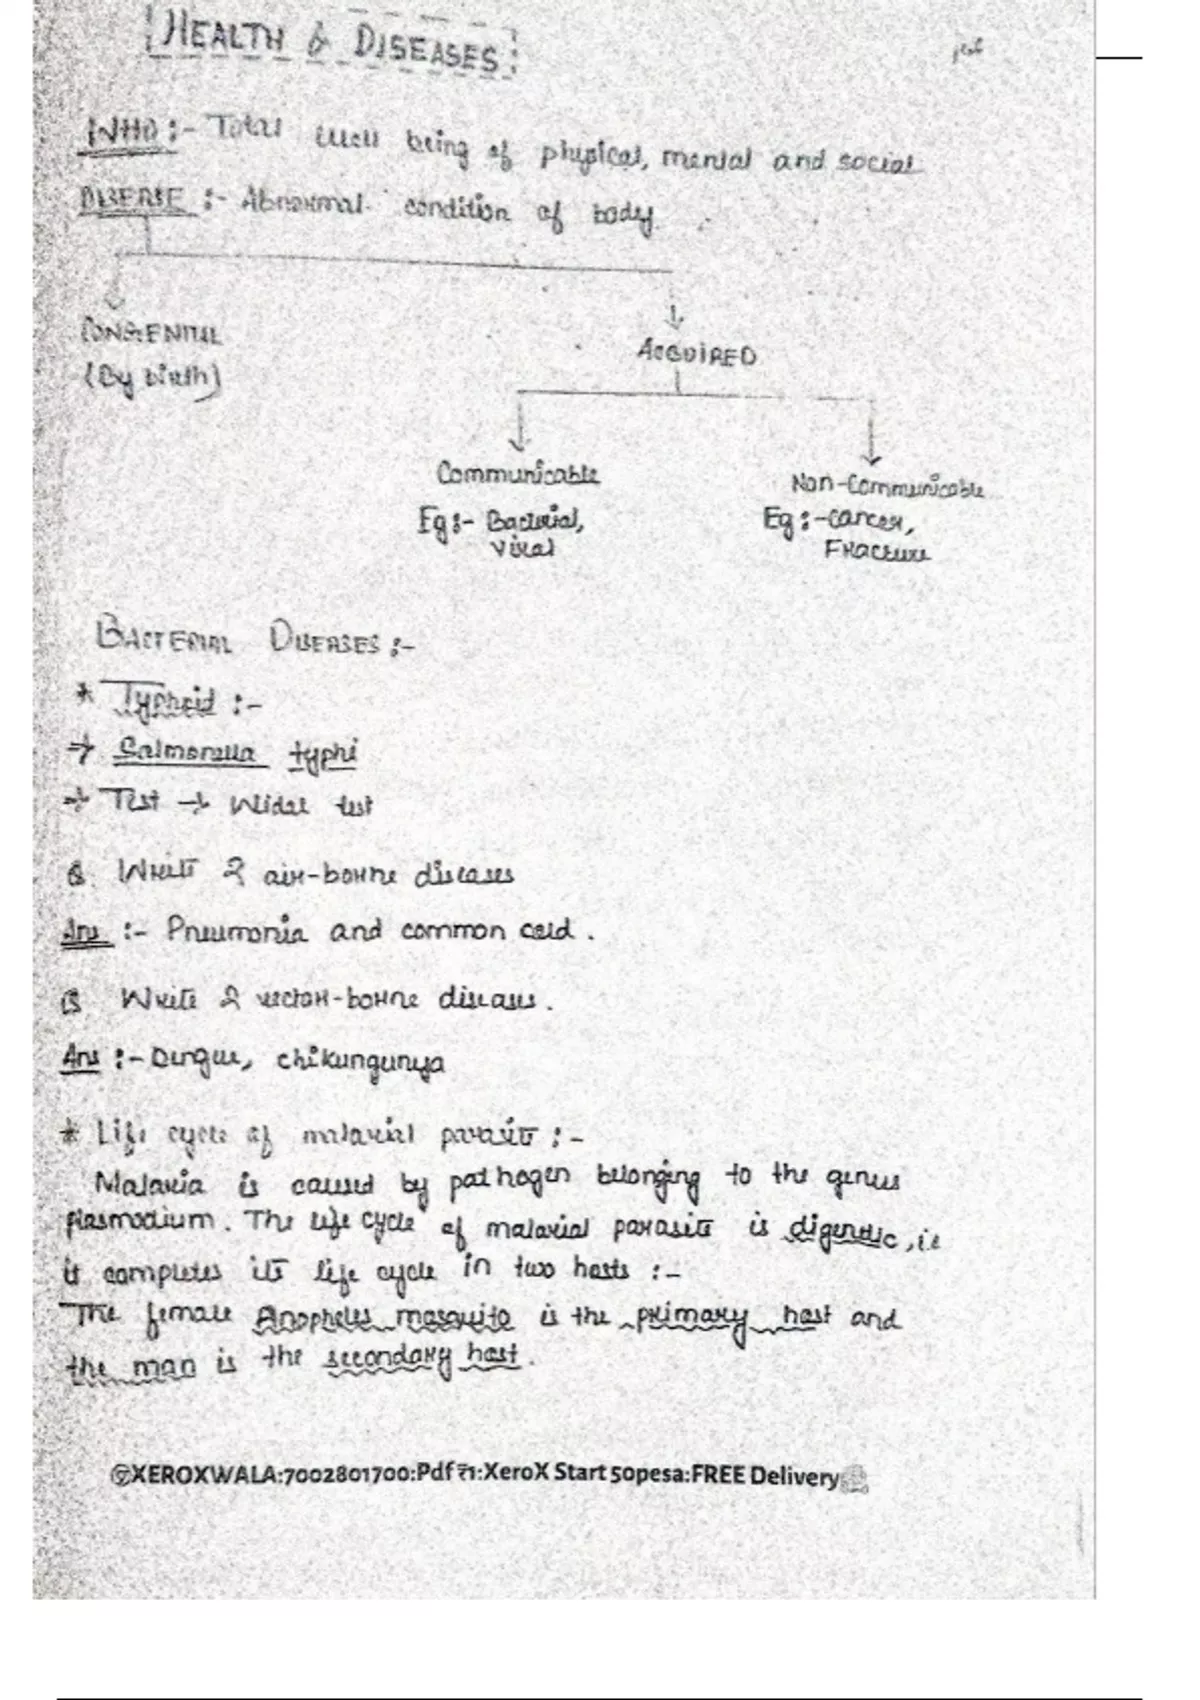 HEALTH & DISEASES:
WHO :- Total well being of physical, mental and social
DISEASE :- Abnormal condition of body.
CONGENITAL
(By birth)
ACQUIRED
Communicable
Eg :- Bacterial,
viral
Non-Communicable
Eg :- cancer,
Fracture
BACTERIAL DISEASES :-
* Typhoid :-
→ Salmonella typhi
→ Test → Widal test
Q. Write 2 air-borne diseases
Ans :- Pneumonia and common cold.
Q Write 2 vector-borne diseases.
Ans :- Dengue, chikungunya
* Life cycle of malarial parasite :-
Malaria is caused by pathogen belonging to the genus
plasmodium. The life cycle of malarial parasite is digenetic, i.e
it completes its life cycle in two hosts :-
The female Anopheles mosquito is the primary host and
the man is the secondary host.
@XEROXWALA:7002801700:Pdf ₹1:XeroX Start 50pesa:FREE Delivery